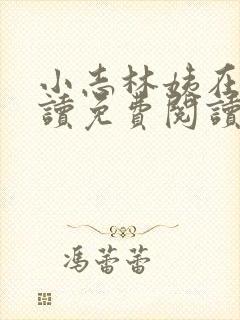 小志林姨在
讀免費閱讀
馮蕾蕾